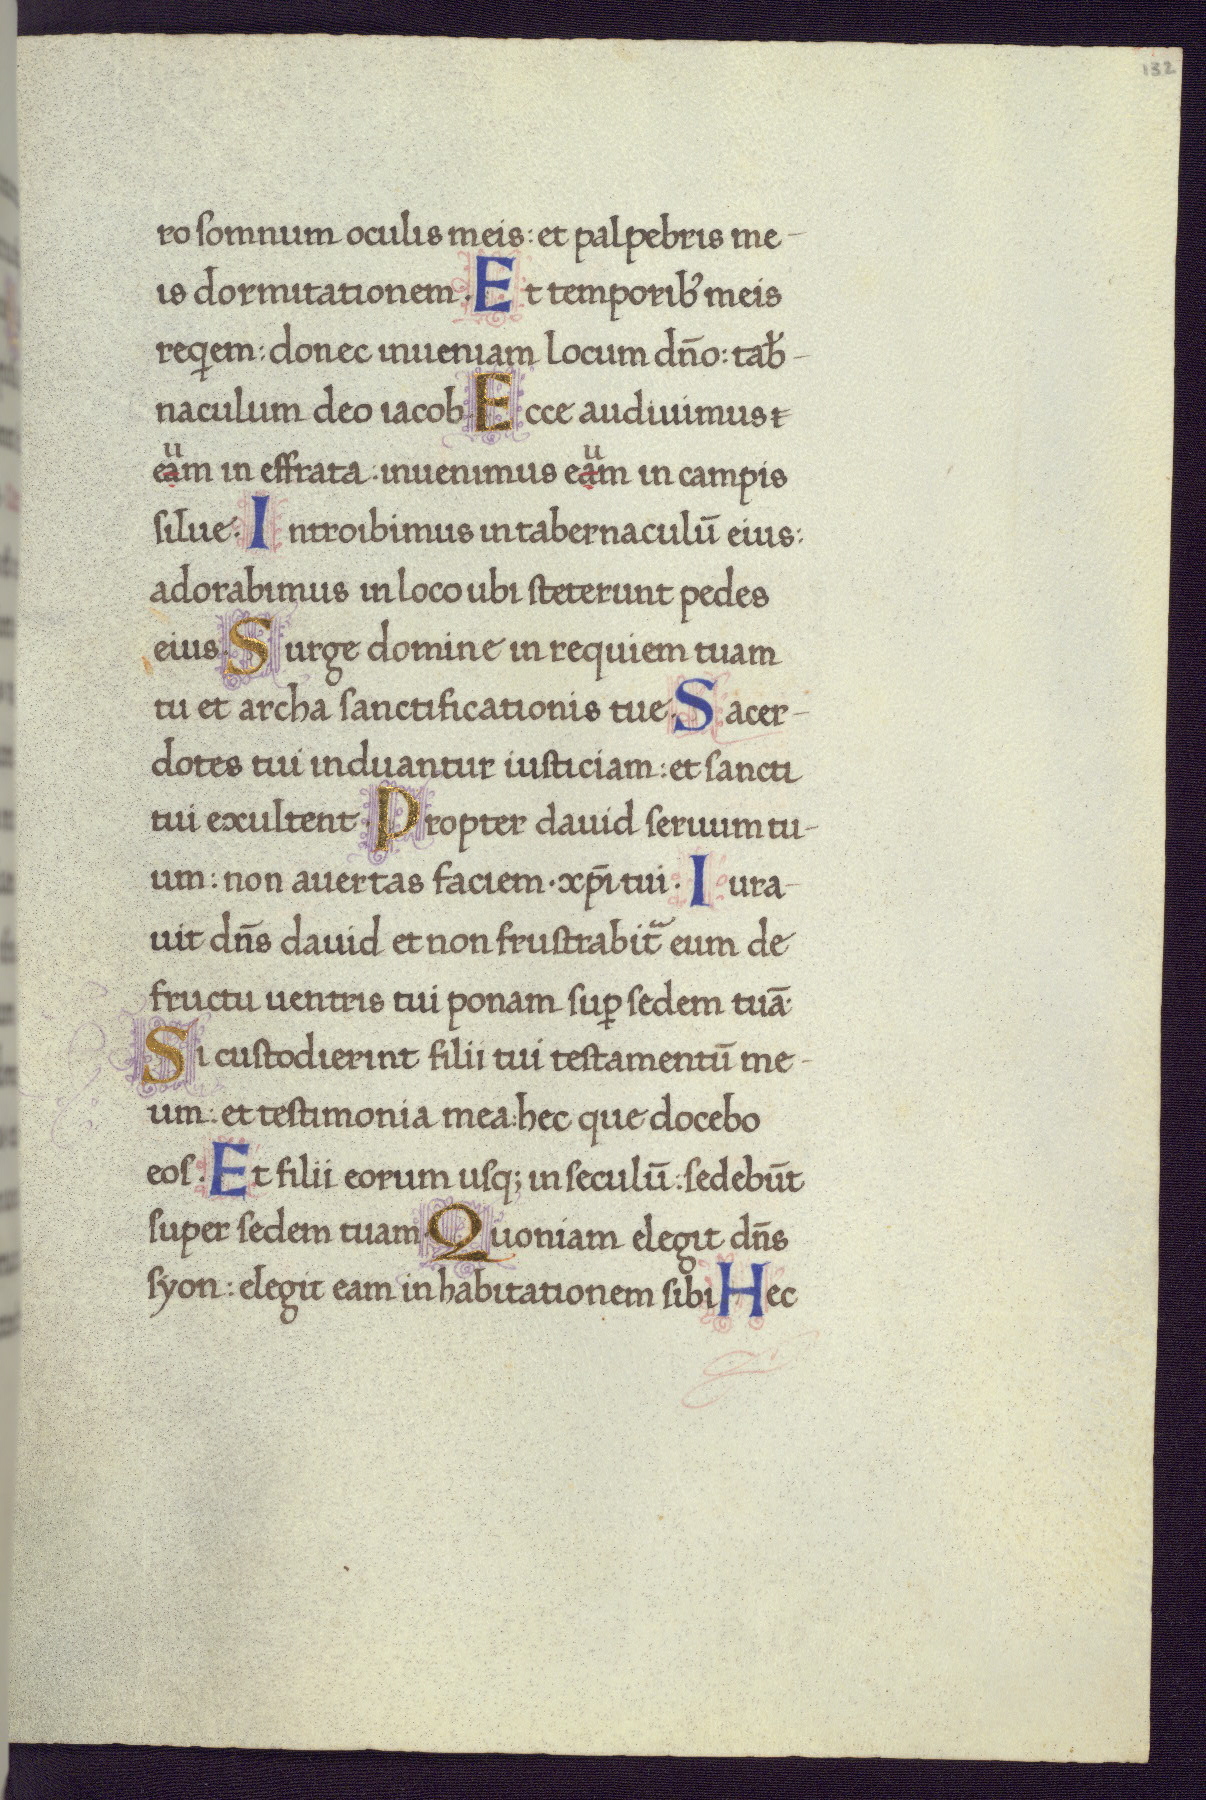 132
ro somnum oculis meis: et palpebris me-
is dormitationem. Et temporib' meis
reqem: donec inueniam locum dn̄o: tab̄-
naculum deo iacob. Ecce audiuimus t
eaum in effrata: inuenimus eaum in campis
silue. Introibimus in tabernaculū eius:
adorabimus in loco ubi steterunt pedes
eius. Surge domine in requiem tuam
tu et archa sanctificationis tue. Sacer-
dotes tui induantur iusticiam: et sancti
tui exultent. Propter dauid seruum tu-
um: non auertas faciem. xp̄i tui. Iura-
uit dn̄s dauid et non frustrabit̄ eum de
fructu uentris tui ponam sup̱ sedem tuā.
Si custodierint filii tui testamentū me-
um: et testimonia mea: hec que docebo
eos. Et filii eorum usq; in seculū: sedebūt
super sedem tuam. Quoniam elegit dn̄s
syon: elegit eam in habitationem sibi Hec